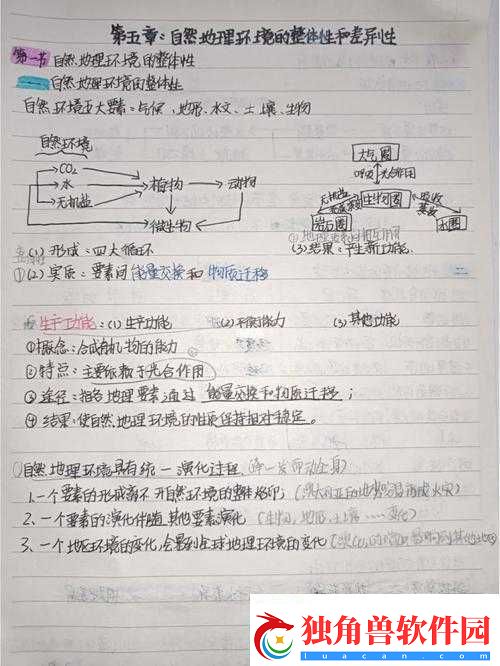 第五章:自然地理环境的整体性和差异性
第一节 自然地理环境的整体性
一 自然地理环境的整体性
自然环境五大要素:气候、地形、水文、土壤、生物
自然环境
CO₂
水
无机盐
植物
动物
微生物
大气圈
呼吸 光合作用
生物圈
无机盐
岩石圈
吸收
蒸腾
水圈
(1) 形成:四大循环
(3) 结果:产生新功能.
(2) 实质:要素间能量交换和物质迁移
生产功能:(1) 生产功能 (2) 平衡能力 (3) 其他功能
①概念:合成有机物的能力
②特点:主要依赖于光合作用
③途径:各地理要素通过能量交换和物质迁移;
④结果:使自然地理环境的性质保持相对稳定。
自然地理环境具有统一演化过程 (牵一发而动全身)
1.一个要素的形成离不开自然环境的整体烙印;
2、一个要素的演化伴随其他要素演化 (生物、地形、土壤……变化)
3、一个地区环境的变化,会影响到全球地理环境的变化
独角兽软件园
luacan.com